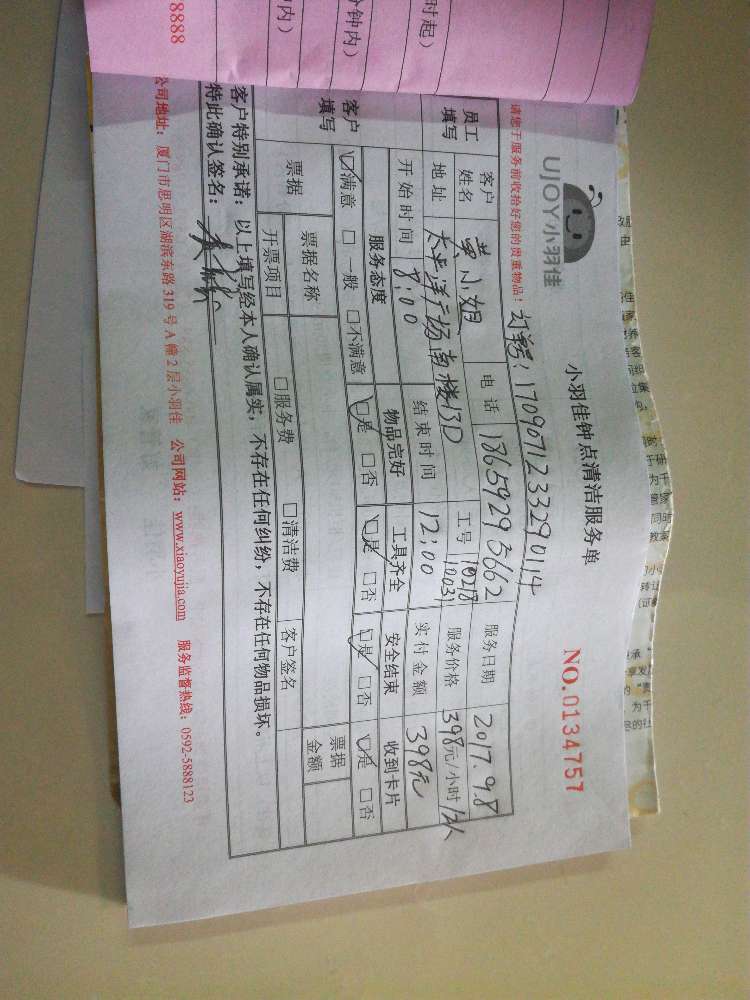 UJOY小羽佳
小羽佳钟点清洁服务单
NO.0134757
请您于服务前收拾好您的贵重物品！
订单号：170907123329 0114
员工填写
客户姓名 黄小姐 电话 13659293662 服务日期 2017.9.8
地址 太平洋广场南楼13D 工号 10218 10031 服务价格 398元/小时/2人
开始时间 8:00 结束时间 12:00 实付金额 398元
客户填写
服务态度 物品完好 工具齐全 安全结束 收到卡片
☑满意 □一般 □不满意 ☑是 □否 ☑是 □否 ☑是 □否 ☑是 □否
票据 票据名称 票据金额
开票项目 □服务费 □清洁费 客户签名
客户特别承诺：以上填写经本人确认属实，不存在任何纠纷，不存在任何物品损坏。
特此确认签名：
公司地址：厦门市思明区湖滨东路319号A幢2层小羽佳 公司网站：www.xiaoyujia.com 服务监督热线：0592-5888123
时起）
分钟内）
内）
8888